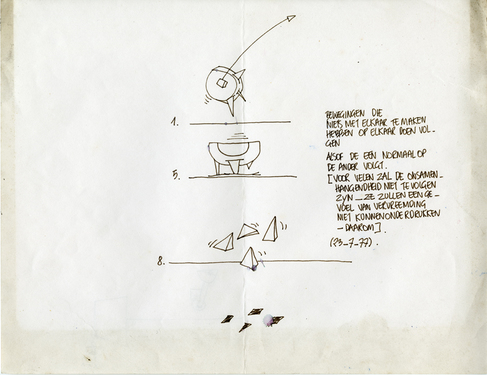 1.
5.
8.
BEWEGINGEN DIE
NIETS MET ELKAAR TE MAKEN
HEBBEN OP ELKAAR DOEN VOL-
GEN
ALSOF DE EEN NORMAAL OP
DE ANDER VOLGT.
[VOOR VELEN ZAL DE ONSAMEN-
HANGENDHEID NIET TE VOLGEN
ZYN _ ZE ZULLEN EEN GE-
VOEL VAN VERVREEMDING
NIET KUNNEN ONDERDRUKKEN
- DAAROM].
(23_7_77).